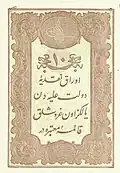 ١٠
اوراق نقدیۀ
دولت علیه دن
یالکز اون غروشلق
قائمۀ معتبره در